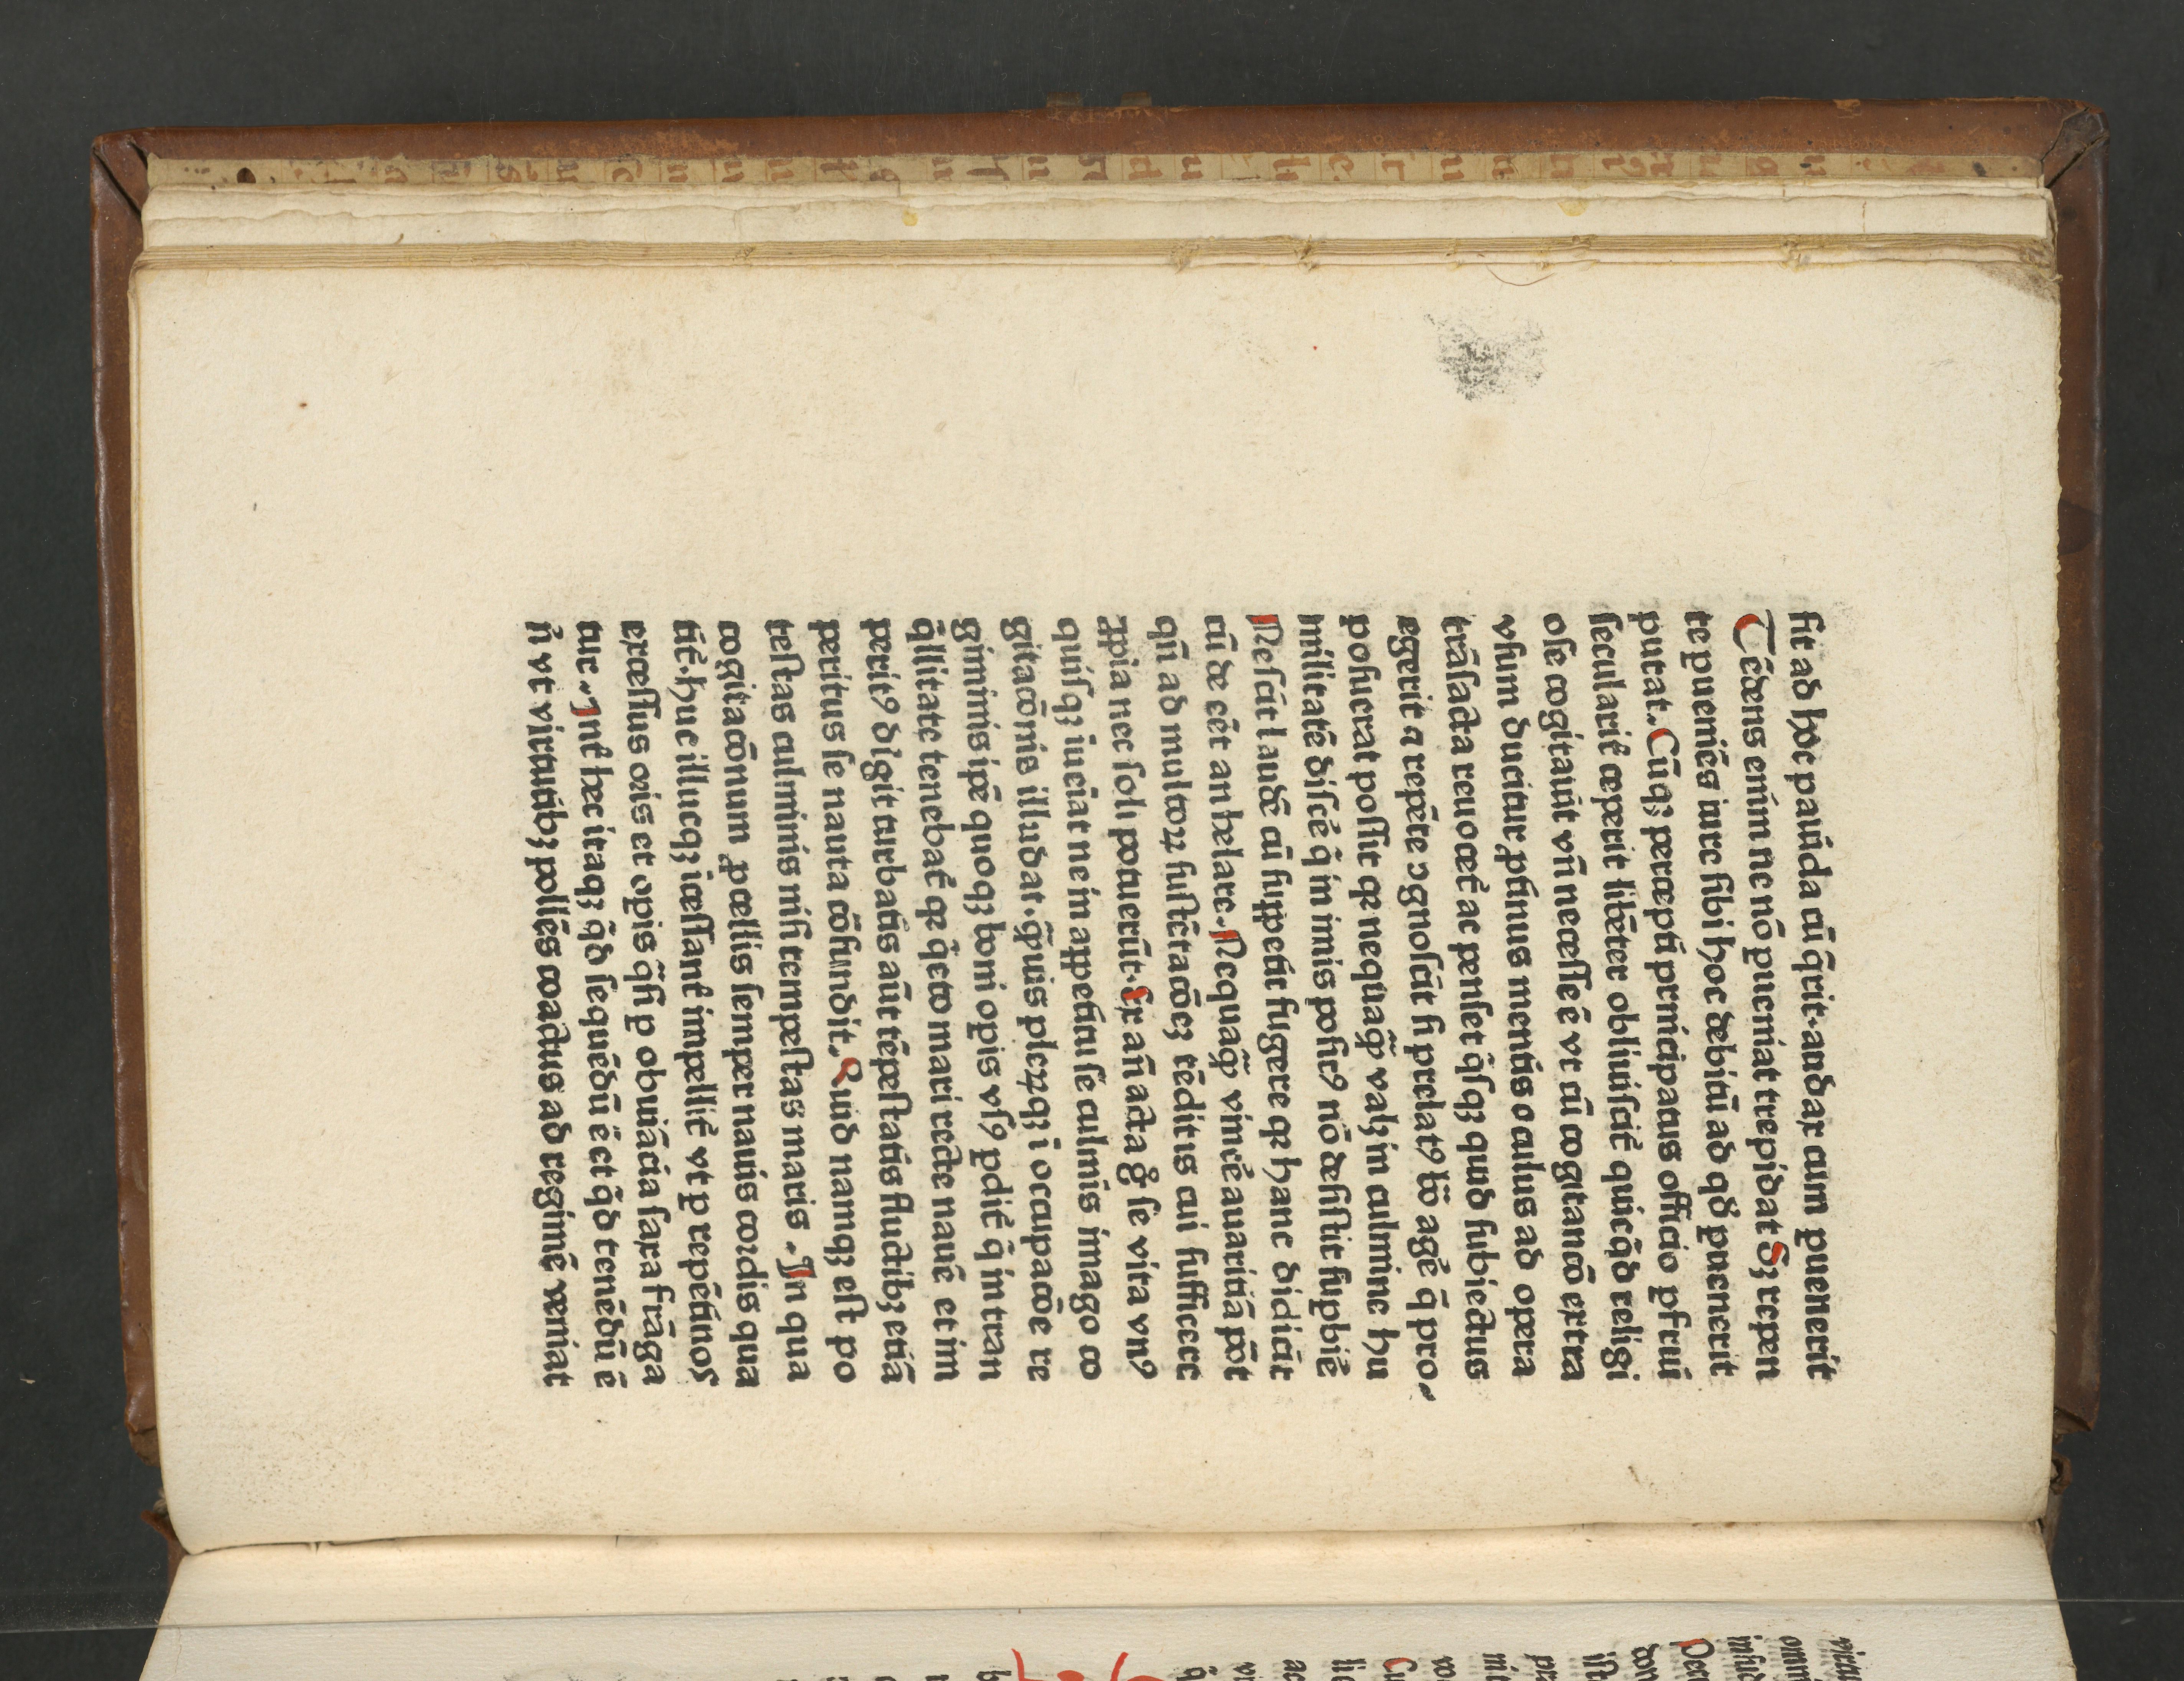 fit ad hoc paūda cū q̄rit· audax cum puenerit
Tēdens enim ne nō pueniat trepidat Sꝫ repen
te pueniēs iure sibi hoc debitū ad qd̄ puenerit
putat· Cūqꝫ percepti principatus officio pfrui
seculariť ceperit libēter obliuiscit᷑ quicq̄d religi
ose cogitauit vn̄ necesse ē vt cū cogitatiō extra
vsum ducitur ptinus mentis oculus ad opera
trāsacta reuocet᷑ ac penset q̄sqꝫ quid subiectus
egerit ⁊ repēte ꝯgnoscit si prelatꝰ bō agē q̄ pro⸗
posuerat possit qꝛ neq̄uaqᷓ valꝫ in culmine hu
militatē discē q̄ in imis positꝰ nō desistit supbiē
Nescit laudē cū suppetit fugere qꝛ hanc didicit
cū deeēt anhelare· Nequaqᷓ vincē auaritiā pōt
qn̄ ad multoꝝ sustētatiōeꝫ tēditis cui sufficere
ꝓpria nec soli potuerūt· Ex an̄acta gͦ se vita vnꝰ
quisqꝫ iueniat ne in appetitu se culmīs imago co
gitatiōnis illudat· qᷓuis pleꝝqꝫ ī occupatiōe re
giminis ipē quoqꝫ boni opis vsꝰ pdit᷑ q̄ in tran
q̄llitate tenebat᷑ qꝛ q̄eto mari recte nauē et im
peritꝰ dīgit turbatis aūt tēpestatis fluctibꝫ etiā
peritus se nauta cōfundit· Quid namqꝫ est po
testas culminis nisi tempestas maris· In qua
cogitatiōnum ꝓcellis semper nauis cordis qua
tit᷑· huc illucqꝫ īcessant᷑ impellit᷑ vt p repētinos
excessus oris et opis q̄si p obuiātia saxa frāga
tur· Int᷑ hec itaqꝫ qd̄ sequēdū ē et qd̄ tenēdū ē
n̄ vt virtutibꝫ pollēs coactus ad regimē veniat